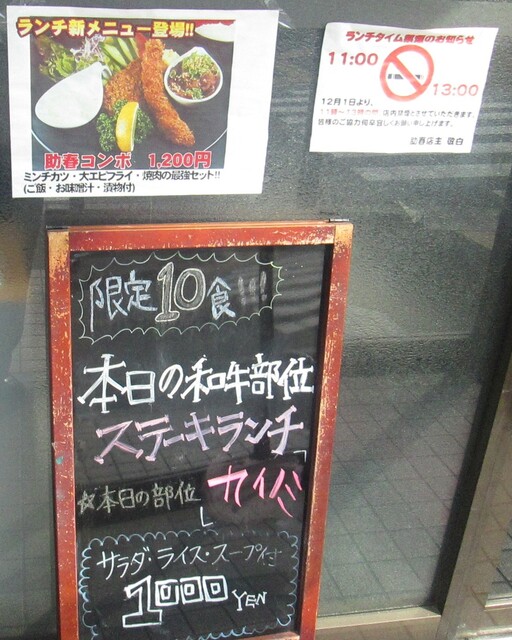 ランチ新メニュー登場!!
助春コンボ 1,200円
ミンチカツ・大エビフライ・焼肉の最強セット!!
(ご飯・お味噌汁・漬物付)
ランチタイム禁煙のお知らせ
11:00
13:00
12月1日より、
11時～13時の間、店内禁煙とさせていただきます。
皆様のご協力何卒宜しくお願い申し上げます。
助春店主 敬白
限定10食!!!
本日の和牛部位
ステーキランチ
☆本日の部位 「カイノミ」
サラダ・ライス・スープ付
1000 YEN